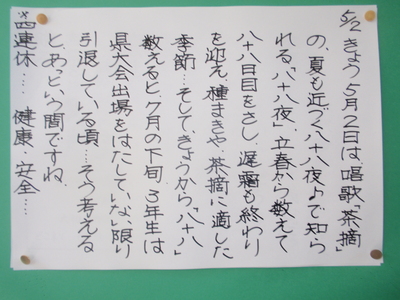 5/2 きょう5月2日は唱歌「茶摘」
の、夏も近づく八十八夜♪で知ら
れる「八十八夜」、立春から数えて
八十八日目をさし、遅霜も終わり
を迎え、種まきや、茶摘に適した
季節…そして、きょうから「八十八」
数えると、7月の下旬 3年生は
県大会出場をはたしていない限り
引退している頃…そう考える
と、あっという間ですね、
※四連休…… 健康・安全……